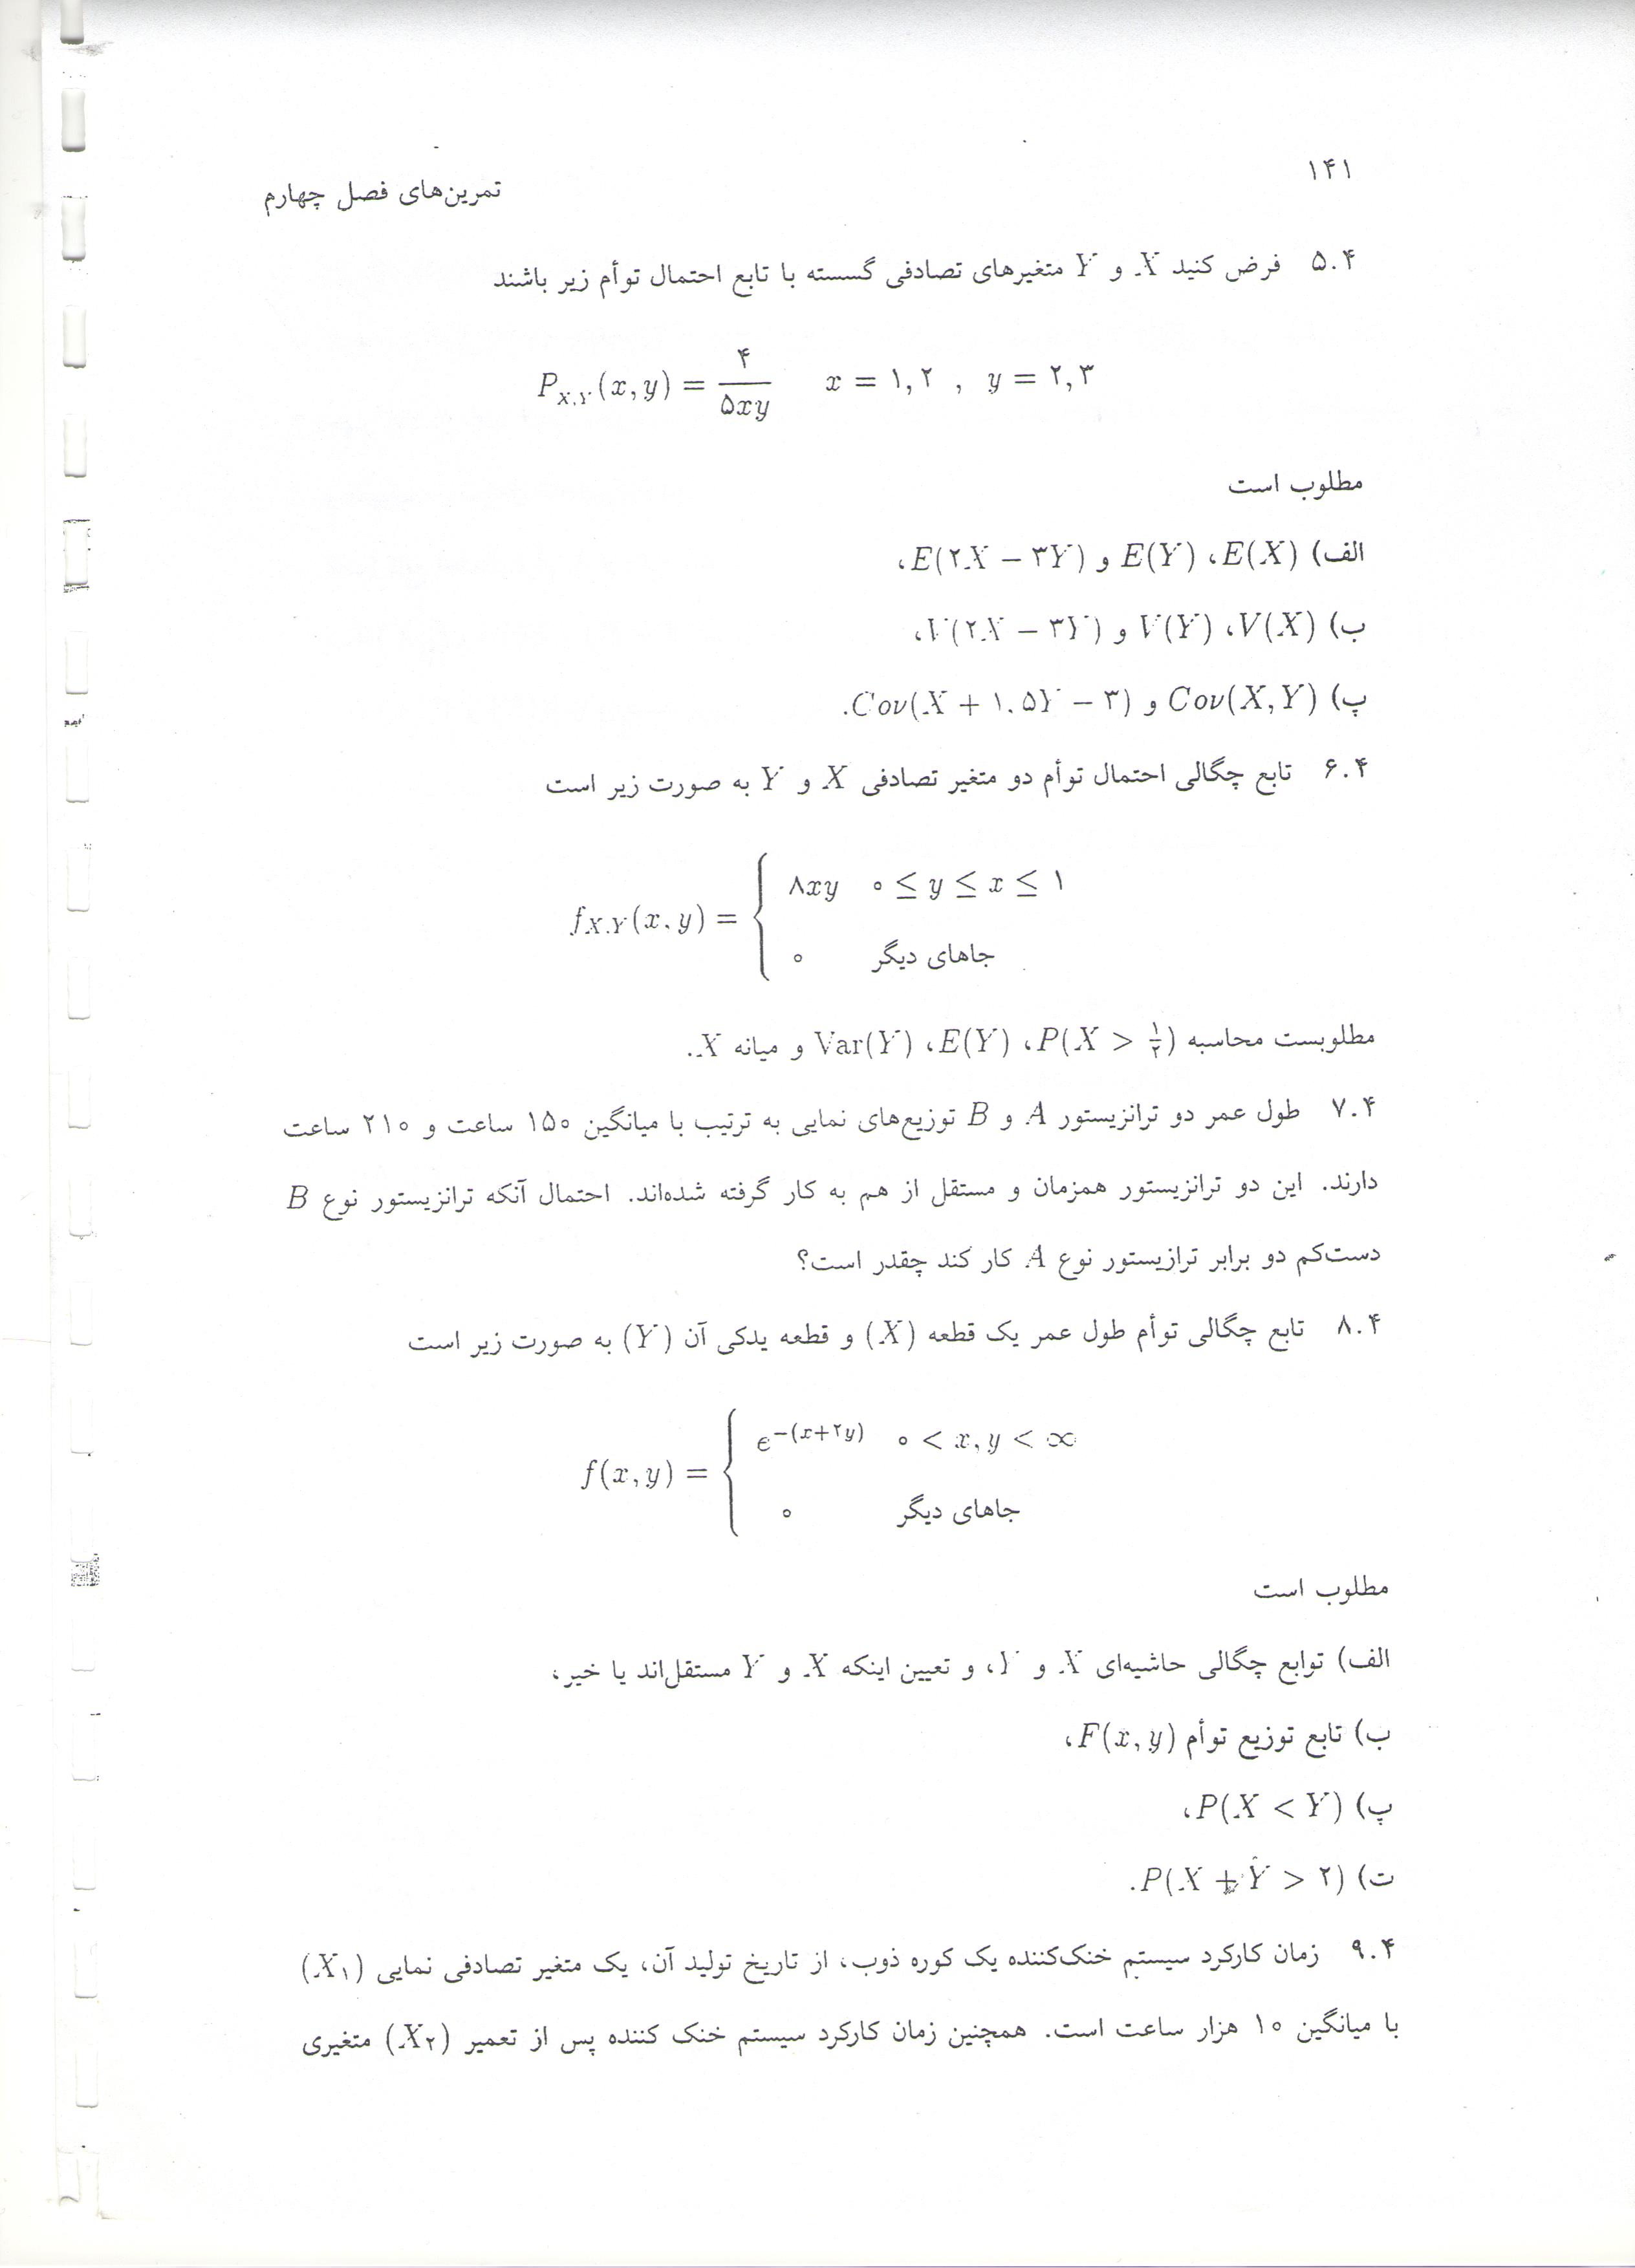 ۱۴۱
تمرین‌های فصل چهارم
۵.۴ فرض کنید X و Y متغیرهای تصادفی گسسته با تابع احتمال توأم زیر باشند
P_{X,Y}(x, y) = ۴/۵xy   x = ۱, ۲ , y = ۲, ۳
مطلوب است
الف) E(X)، E(Y) و E(۲X − ۳Y)،
ب) V(X)، V(Y) و V(۲X − ۳Y)،
پ) Cov(X, Y) و Cov(X + ۱.۵Y − ۳).
۶.۴ تابع چگالی احتمال توأم دو متغیر تصادفی X و Y به صورت زیر است
f_{X,Y}(x, y) = { ۸xy   ۰ ≤ y ≤ x ≤ ۱
۰   جاهای دیگر
مطلوبست محاسبه P(X > ۱/۲)، E(Y)، Var(Y) و میانه X.
۷.۴ طول عمر دو ترانزیستور A و B توزیع‌های نمایی به ترتیب با میانگین ۱۵۰ ساعت و ۲۱۰ ساعت
دارند. این دو ترانزیستور همزمان و مستقل از هم به کار گرفته شده‌اند. احتمال آنکه ترانزیستور نوع B
دست‌کم دو برابر ترازیستور نوع A کار کند چقدر است؟
۸.۴ تابع چگالی توأم طول عمر یک قطعه (X) و قطعه یدکی آن (Y) به صورت زیر است
f(x, y) = { e^{−(x+۲y)}   ۰ < x, y < ∞
۰   جاهای دیگر
مطلوب است
الف) توابع چگالی حاشیه‌ای X و Y، و تعیین اینکه X و Y مستقل‌اند یا خیر،
ب) تابع توزیع توأم F(x, y)،
پ) P(X < Y)،
ت) P(X + Y > ۲).
۹.۴ زمان کارکرد سیستم خنک‌کننده یک کوره ذوب، از تاریخ تولید آن، یک متغیر تصادفی نمایی (X۱)
با میانگین ۱۰ هزار ساعت است. همچنین زمان کارکرد سیستم خنک کننده پس از تعمیر (X۲) متغیری